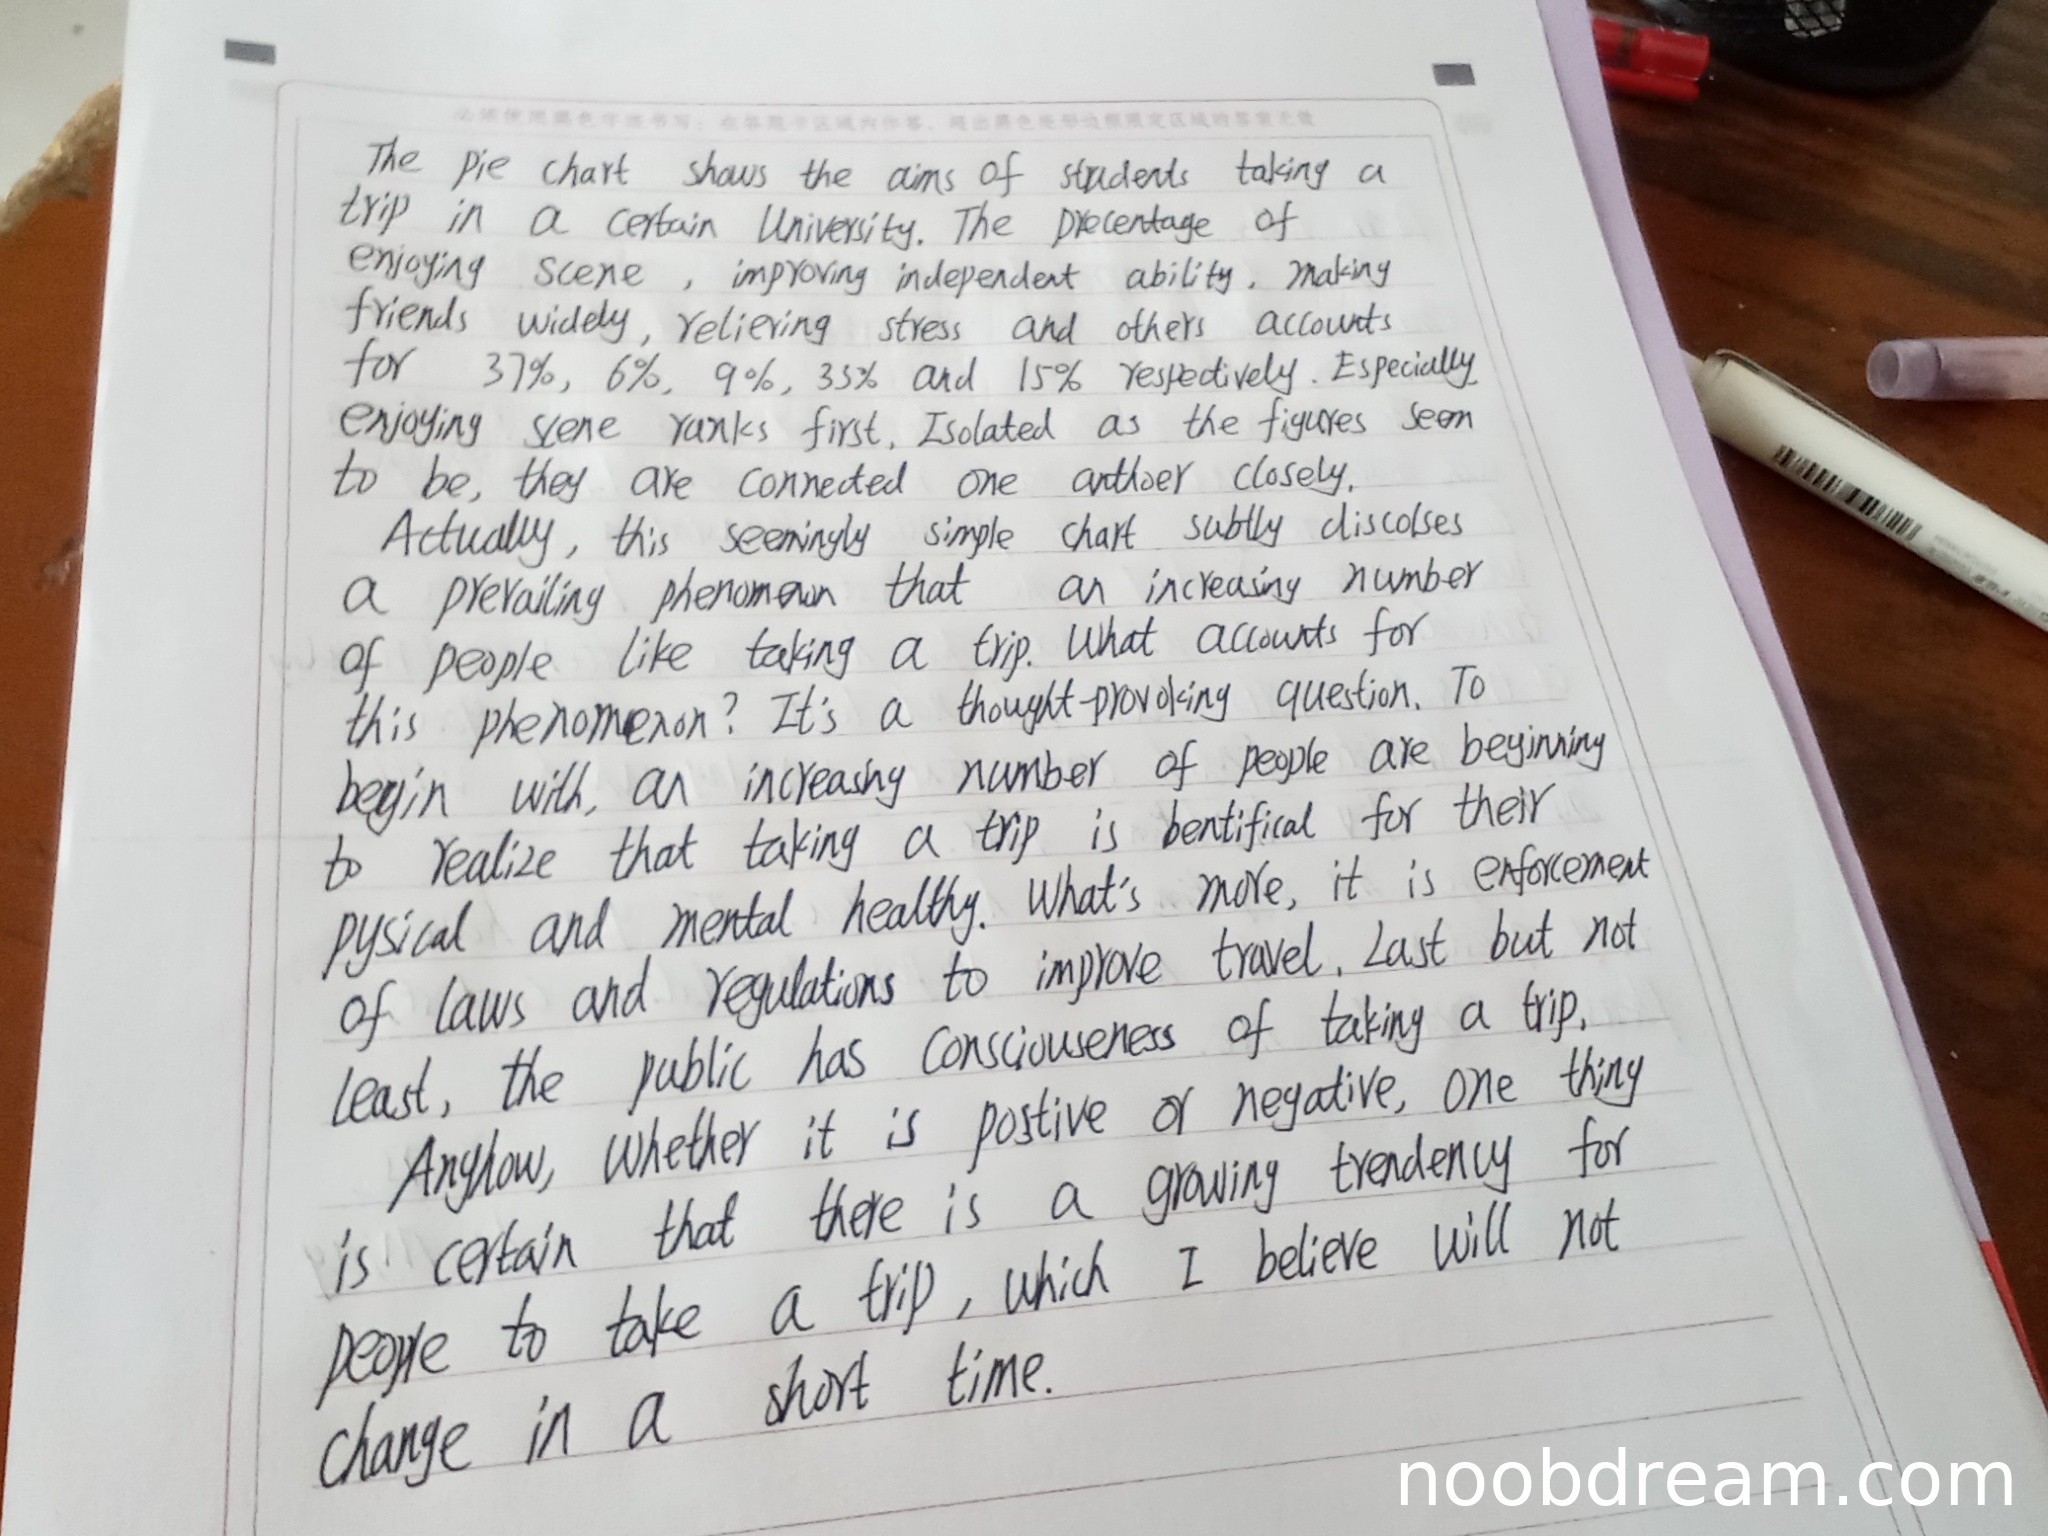 The pie chart shows the aims of students taking a
trip in a certain University. The precentage of
enjoying scene , improving independent ability, making
friends widely, relieving stress and others accounts
for 37%, 6%, 9%, 33% and 15% respectively. Especially
enjoying scene ranks first. Isolated as the figures seem
to be, they are connected one anthoer closely.
Actually, this seemingly simple chart subtly discolses
a prevailing phenomenon that an increasing number
of people like taking a trip. What accounts for
this phenomenon? It's a thought-provoking question. To
begin with, an increasing number of people are beginning
to realize that taking a trip is bentifical for their
pysical and mental healthy. What's more, it is enforcement
of laws and regulations to improve travel. Last but not
least, the public has consciouseness of taking a trip.
Anyhow, whether it is postive or negative, one thing
is certain that there is a growing trendency for
people to take a trip, which I believe will not
change in a short time.
noobdream.com